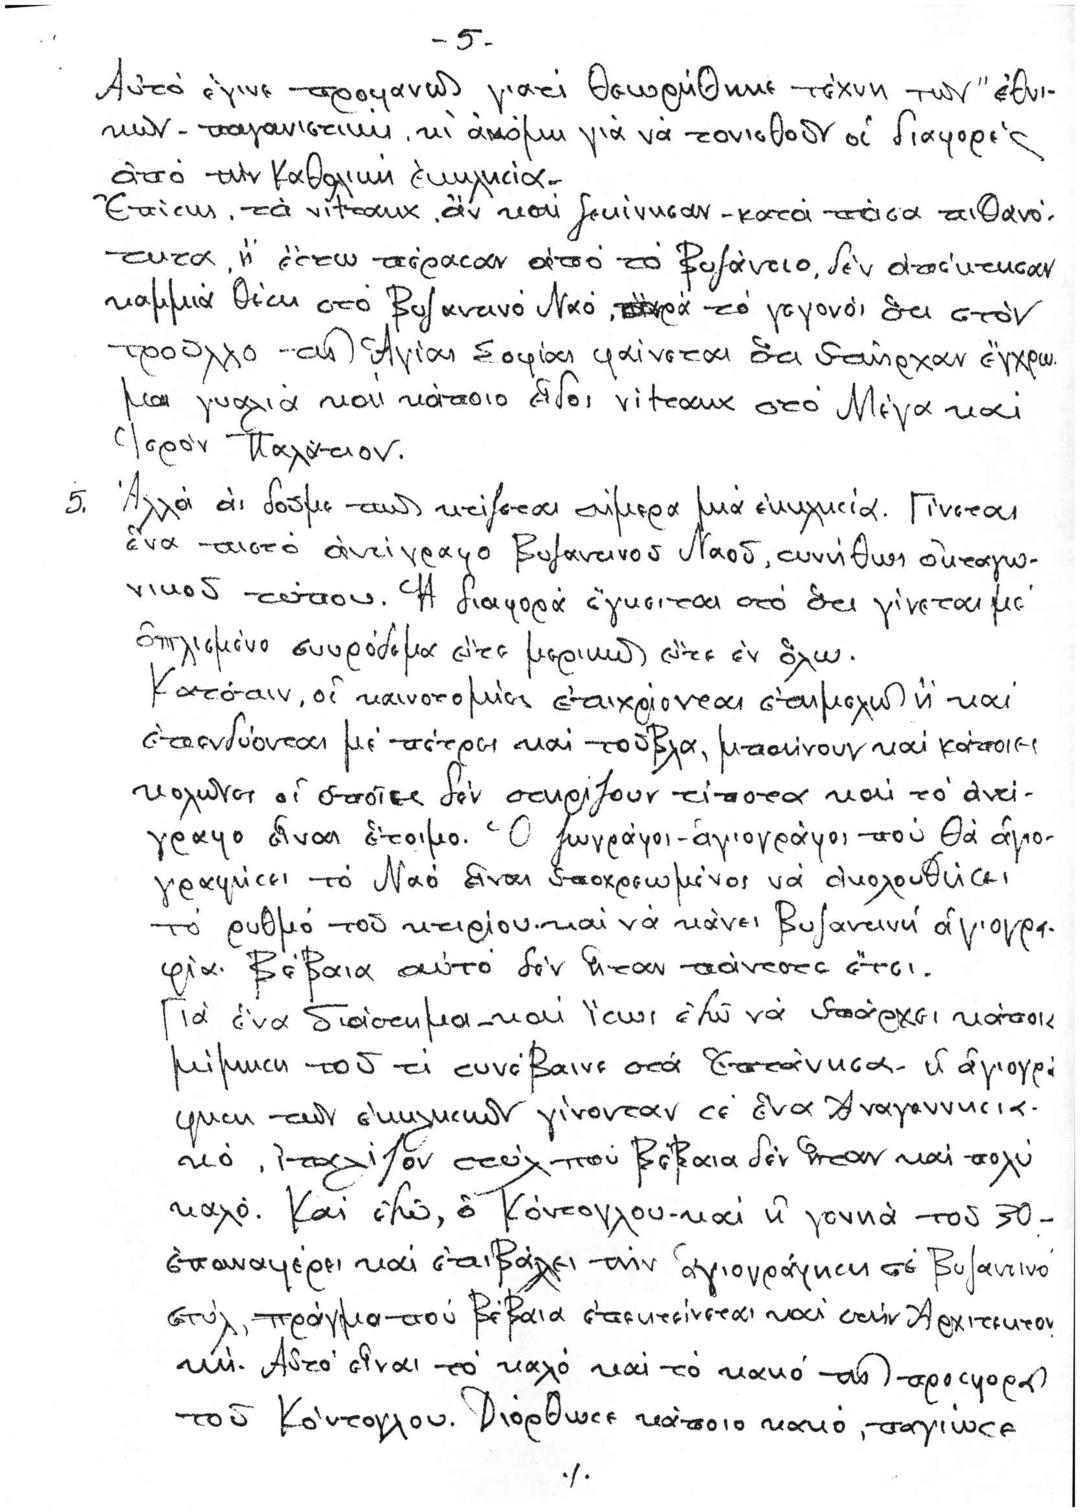 -5-
Αὐτό ἔγινε προφανῶς γιατί θεωρήθηκε τέχνη τῶν "ἐθνι-
κῶν - παγανιστική, κι ἀκόμη γιά νά τονισθοῦν οἱ διαφορές
ἀπό τήν Καθολική ἐκκλησία-
Ἐπίσης, τά vitraux, ἄν καί ξεκίνησαν - κατά πᾶσα πιθανό-
τητα, ἤ ἔστω πέρασαν ἀπό τό Βυζάντιο, δέν ἀπέκτησαν
καμμιά θέση στό Βυζαντινό Ναό, παρά τό γεγονός ὅτι στόν
τροῦλλο τῆς Ἁγίας Σοφίας φαίνεται ὅτι ὑπῆρχαν ἔγχρω-
μα γυαλιά καί κάποιο εἶδος vitraux στό Μέγα καί
Ἱερόν Παλάτιον.
5. Ἀλλά ἄς δοῦμε πῶς κτίζεται σήμερα μιά ἐκκλησία. Γίνεται
ἕνα πιστό ἀντίγραφο Βυζαντινοῦ Ναοῦ, συνήθως ὀκταγω-
νικοῦ τύπου. Ἡ διαφορά ἔγκειται στό ὅτι γίνεται μέ
ὁπλισμένο σκυρόδεμα εἴτε μερικῶς εἴτε ἐν ὅλω.
Κατόπιν, οἱ καινοτομίες ἐπιχρίονται ἐπιμελῶς ἤ καί
ἐπενδύονται μέ πέτρες καί τοῦβλα, μπαίνουν καί κάποιες
κολῶνες οἱ ὁποῖες δέν στηρίζουν τίποτα καί τό ἀντί-
γραφο εἶναι ἕτοιμο. Ὁ ζωγράφος-ἁγιογράφος πού θά ἁγιο-
γραφήσει τό Ναό εἶναι ὑποχρεωμένος νά ἀκολουθήσει
τό ρυθμό τοῦ κτιρίου καί νά κάνει Βυζαντινή ἁγιογρα-
φία. Βέβαια αὐτό δέν ἦταν πάντοτε ἔτσι.
Γιά ἕνα διάστημα - καί ἴσως ἐδῶ νά ὑπάρχει κάποια
μίμηση τοῦ τί συνέβαινε στά Ἑπτάνησα - ἡ ἁγιογρά
φηση τῶν ἐκκλησιῶν γίνονταν σέ ἕνα Ἀναγεννησια-
κό, Ἰταλίζον στύλ πού βέβαια δέν ἦταν καί πολύ
καλό. Καί ἐδῶ, ὁ Κόντογλου - καί ἡ γενιά τοῦ 30-
ἐπαναφέρει καί ἐπιβάλει τήν ἁγιογράφηση σέ Βυζαντινό
στύλ, πράγμα πού βέβαια ἐπεκτείνεται καί στήν Ἀρχιτεκτον
κή. Αὐτό εἶναι τό καλό καί τό κακό τῆς προσφορᾶς
τοῦ Κόντογλου. Διόρθωσε κάποιο κακό, παγίωσε
./.